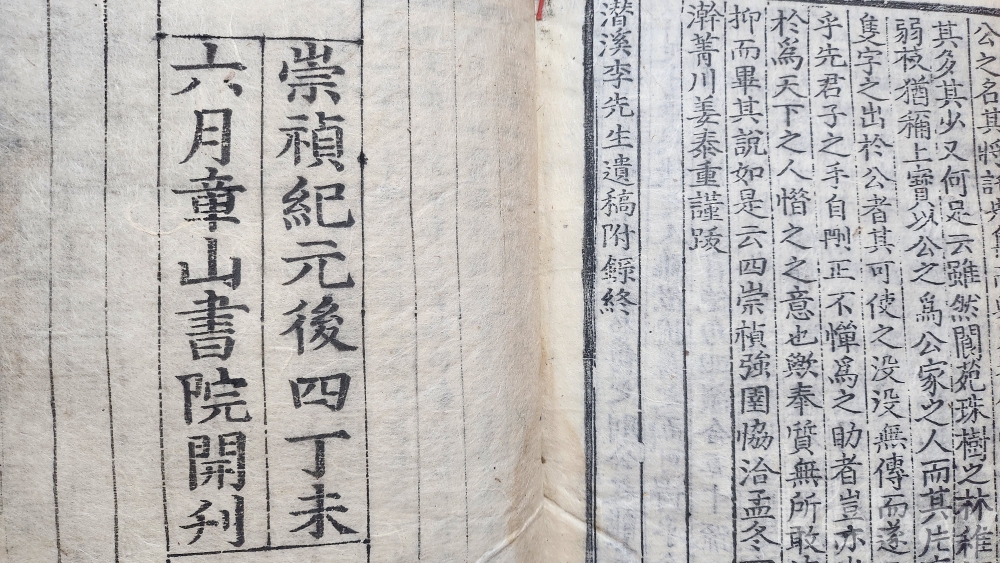 公之名其將
其多其少又何足云雖然閬苑珠樹之林稚
弱枝猶稱上寶以公之爲公家之人而其片
隻字之出於公者其可使之没没無傳而遂
乎先君子之手自刪正不憚爲之助者豈亦
於爲天下之人惜之之意也歟奉質無所敢
抑而畢其說如是云四崇禎強圉恊洽孟冬
澣菁川姜泰重謹跋
潜溪李先生遺稿附錄終
崇禎紀元後四丁未
六月章山書院開刋